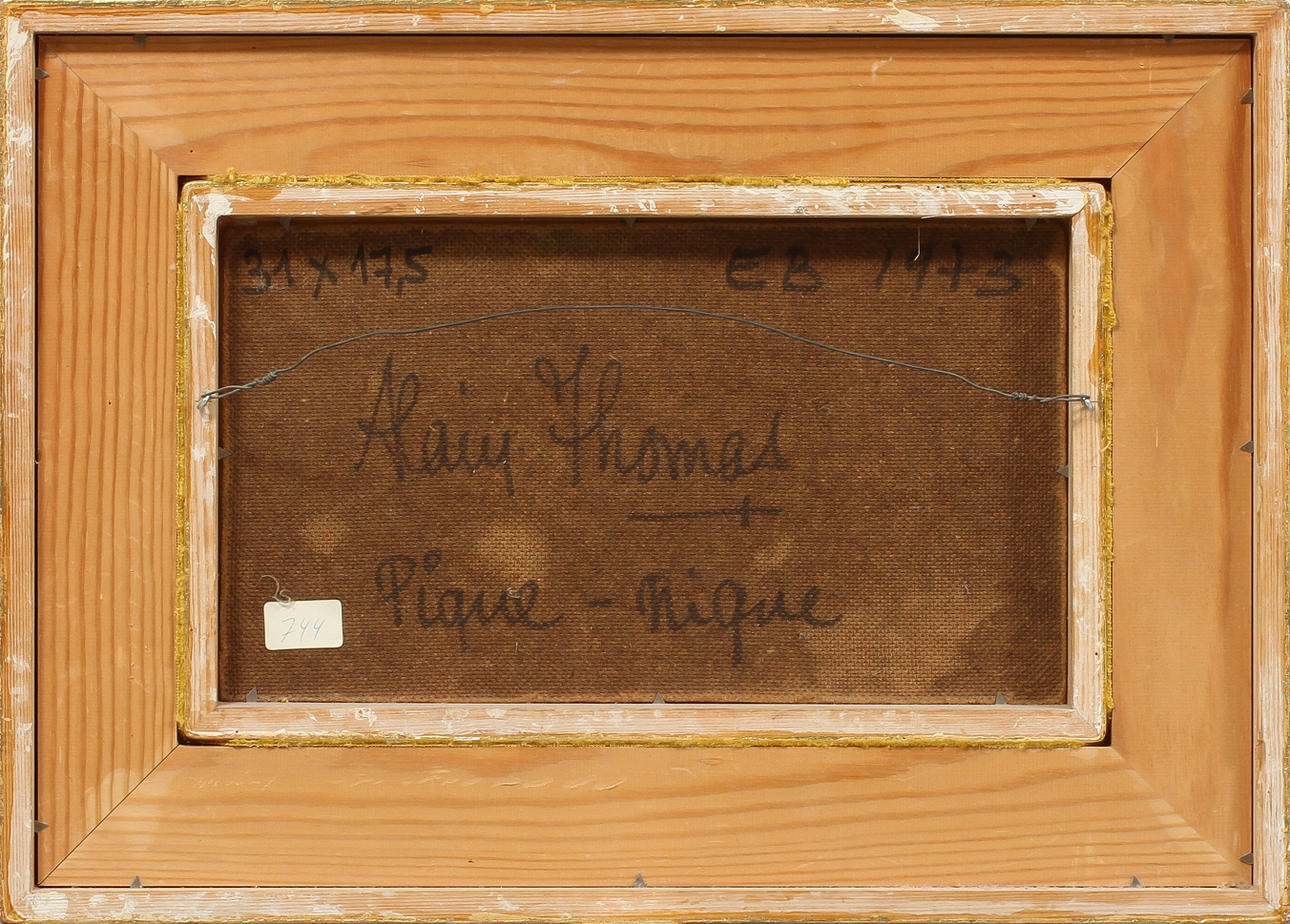 31 x 17,5 EB 1973
Alain Thomas
Pique - nique
744